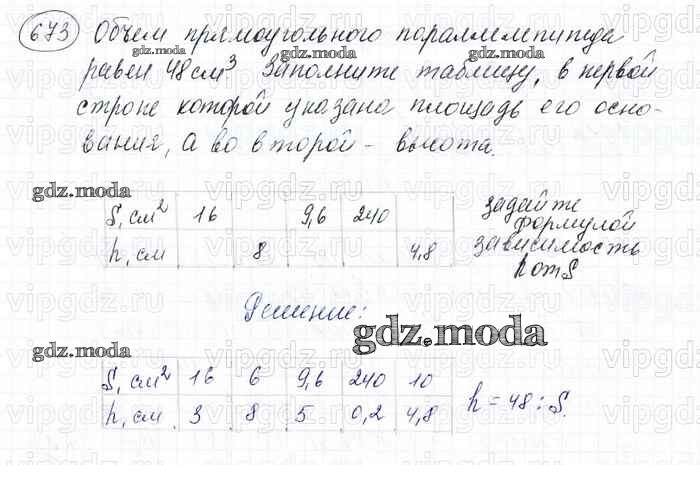 673 Объем прямоугольного параллелепипеда
равен 48 см³ Заполните таблицу, в первой
строке которой указана площадь его осно-
вания, а во второй - высота.
S, см² 16 9,6 240
h, см 8 4,8
задайте
формулой
зависимость
h от S
Решение:
S, см² 16 6 9,6 240 10
h, см 3 8 5 0,2 4,8
h = 48 : S.
gdz.moda
gdz.moda
gdz.moda
gdz.moda
gdz.moda
gdz.moda
gdz.moda
vipgdz.ru